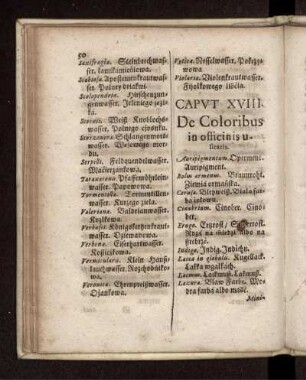 50
Saxifragia. Steinbrechwasser. Łomikamieniowa.
Scabiosa. Apostemenkrautwasser. Polney driakwi.
Scolopendria. Hirschzungenwasser. Jeleniego jezika.
Scordii. Wild Knoblochwasser. Polnego czosnku.
Scorzonera. Schlangenwurtzwasser.
Serpilli. Feldquendelwasser. Macierzankowa.
Taraxaconis. Pfaffenröhrleinwasser. Papawowa.
Tormentilla. Tormentillwasser. Kurzego ziela.
Valeriana. Baldrianwasser. Kozłkowa.
Verbasci. Königskertzenkrautwasser. Dziewanowa.
Verbena. Eisenkrautwasser. Koszyczkowa.
Vermicularis. Klein Hauslauchwasser. Rozchodnikowa.
Veronica. Ehrenpreißwasser. Ożankowa.
Urtica. Nesselwasser. Pokrzywowa.
Violaria. Violenkrautwasser. Fiyołkowego liścia.
CAPVT XVIII.
De Coloribus
in officinis u-
sitatis.
Auripigmentum. Operment. Auripigment.
Bolus armenus. Braunroht. Ziemia ormiańska.
Cerusa. Bleyweiß.
Cinabrium. Cinober. Cinober.
Indigo. Indig. Indych.
Lacca in globulis. Kugellack. Lakka w gałkach.
Lacmus. Lackmuß. Lakmuß.
Lazura. Blaw Farbe. Modra farbá álbo máść.
Mini-